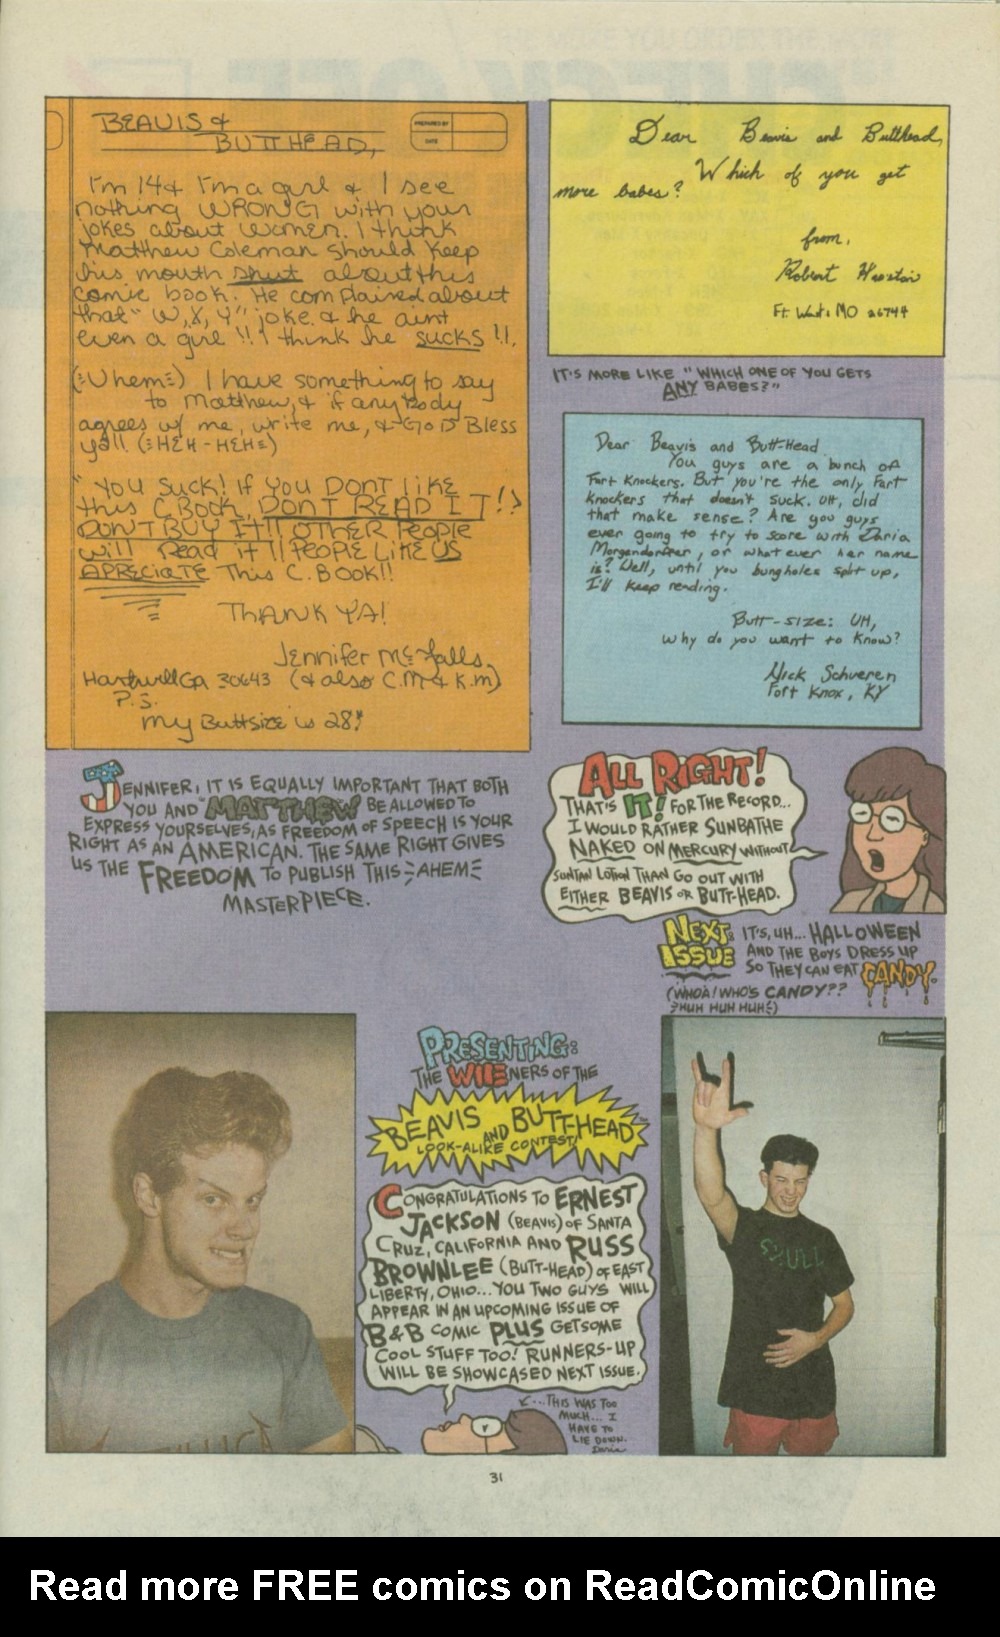 BEAVIS &
BUTTHEAD,
PREPARED BY
DATE
I'm 14 & I'm a girl & I see
nothing WRONG with your
jokes about women. I think
Matthew Coleman should keep
his mouth shut about this
comic book. He complained about
that "W, X, Y" joke & he aint
even a girl!! I think he sucks!!
(:Uhem:) I have something to say
to Matthew, & if anybody
agrees w/ me, write me, & GOD Bless
yall (:HEH-HEH:)
"YOU SUCK! IF YOU DONT LIKE
this C.BOOK, DONT READ IT!!
DON'T BUY IT!! OTHER PEOPLE
will Read it!! PEOPLE LIKE US
APRECIATE This C. BOOK!!
THANK YA!
Jennifer McFalls
Hartwell Ga 30643 (& also C.M & K.M)
P.S.
My Buttsize is 28!
Dear Beavis and Butthead,
Which of you get
more babes?
from,
Robert
MO
IT'S MORE LIKE "WHICH ONE OF YOU GETS
ANY BABES?"
Dear Beavis and Butt-Head
You guys are a bunch of
Fart Knockers. But you're the only Fart
Knockers that doesn't suck. UH, did
that make sense? Are you guys
ever going to try to score with Daria
Morgendorffer, or what ever her name
is? Well, until you bungholes split up,
I'll keep reading.
Butt-size: UH,
why do you want to know?
Nick Schueren
Fort Knox, KY
JENNIFER, IT IS EQUALLY IMPORTANT THAT BOTH
YOU AND MATTHEW BE ALLOWED TO
EXPRESS YOURSELVES, AS FREEDOM OF SPEECH IS YOUR
RIGHT AS AN AMERICAN. THE SAME RIGHT GIVES
US THE FREEDOM TO PUBLISH THIS AHEM
MASTERPIECE.
ALL RIGHT!
THAT'S IT! FOR THE RECORD...
I WOULD RATHER SUNBATHE
NAKED ON MERCURY WITHOUT
SUNTAN LOTION THAN GO OUT WITH
EITHER BEAVIS OR BUTT-HEAD.
NEXT ISSUE: IT'S, UH... HALLOWEEN
AND THE BOYS DRESS UP
SO THEY CAN EAT CANDY.
(WHOA! WHO'S CANDY??
HUH HUH HUH)
PRESENTING:
THE WIENERS OF THE
BEAVIS AND BUTT-HEAD™
LOOK-ALIKE CONTEST!
CONGRATULATIONS TO ERNEST
JACKSON (BEAVIS) OF SANTA
CRUZ, CALIFORNIA AND RUSS
BROWNLEE (BUTT-HEAD) OF EAST
LIBERTY, OHIO...YOU TWO GUYS WILL
APPEAR IN AN UPCOMING ISSUE OF
B&B COMIC PLUS GET SOME
COOL STUFF TOO! RUNNERS-UP
WILL BE SHOWCASED NEXT ISSUE.
...THIS WAS TOO
MUCH... I
HAVE TO
LIE DOWN.
Daria
SKULL
31
Read more FREE comics on ReadComicOnline